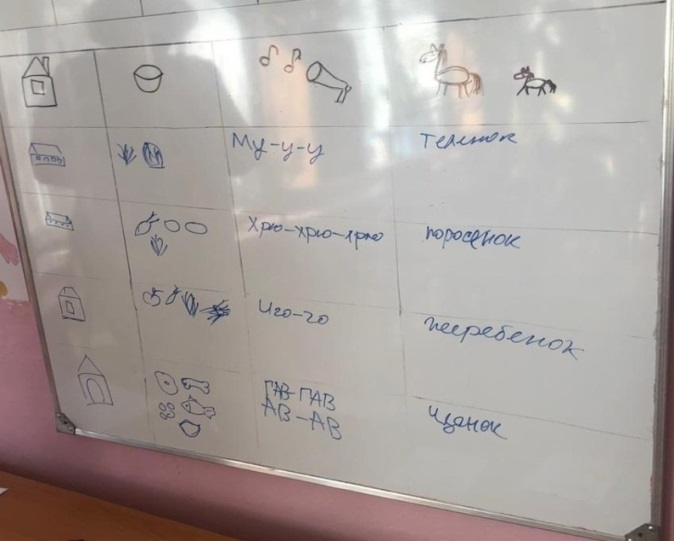 Му-у-у
теленок
Хрю-хрю-хрю
поросенок
Иго-го
жеребенок
ГАВ-ГАВ
АВ-АВ
щенок